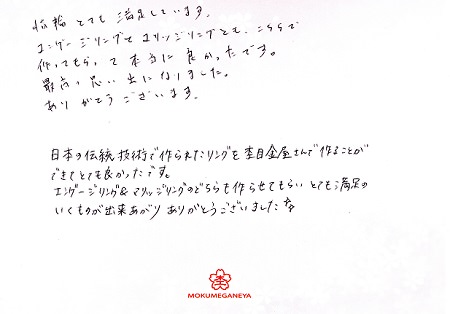 指輪 とても 満足しています。
エンゲージリングもマリッジリングとも、こちらで
作ってもらって 本当に 良かったです。
最高の思い出になりました。
ありがとうございます。
日本の伝統技術で作られたリングを 杢目金屋さんで作ることが
できてとても良かったです。
エンゲージリング&マリッジリングのどちらも作らせてもらい とても満足の
いくものが出来あがり ありがとうございました
MOKUMEGANEYA